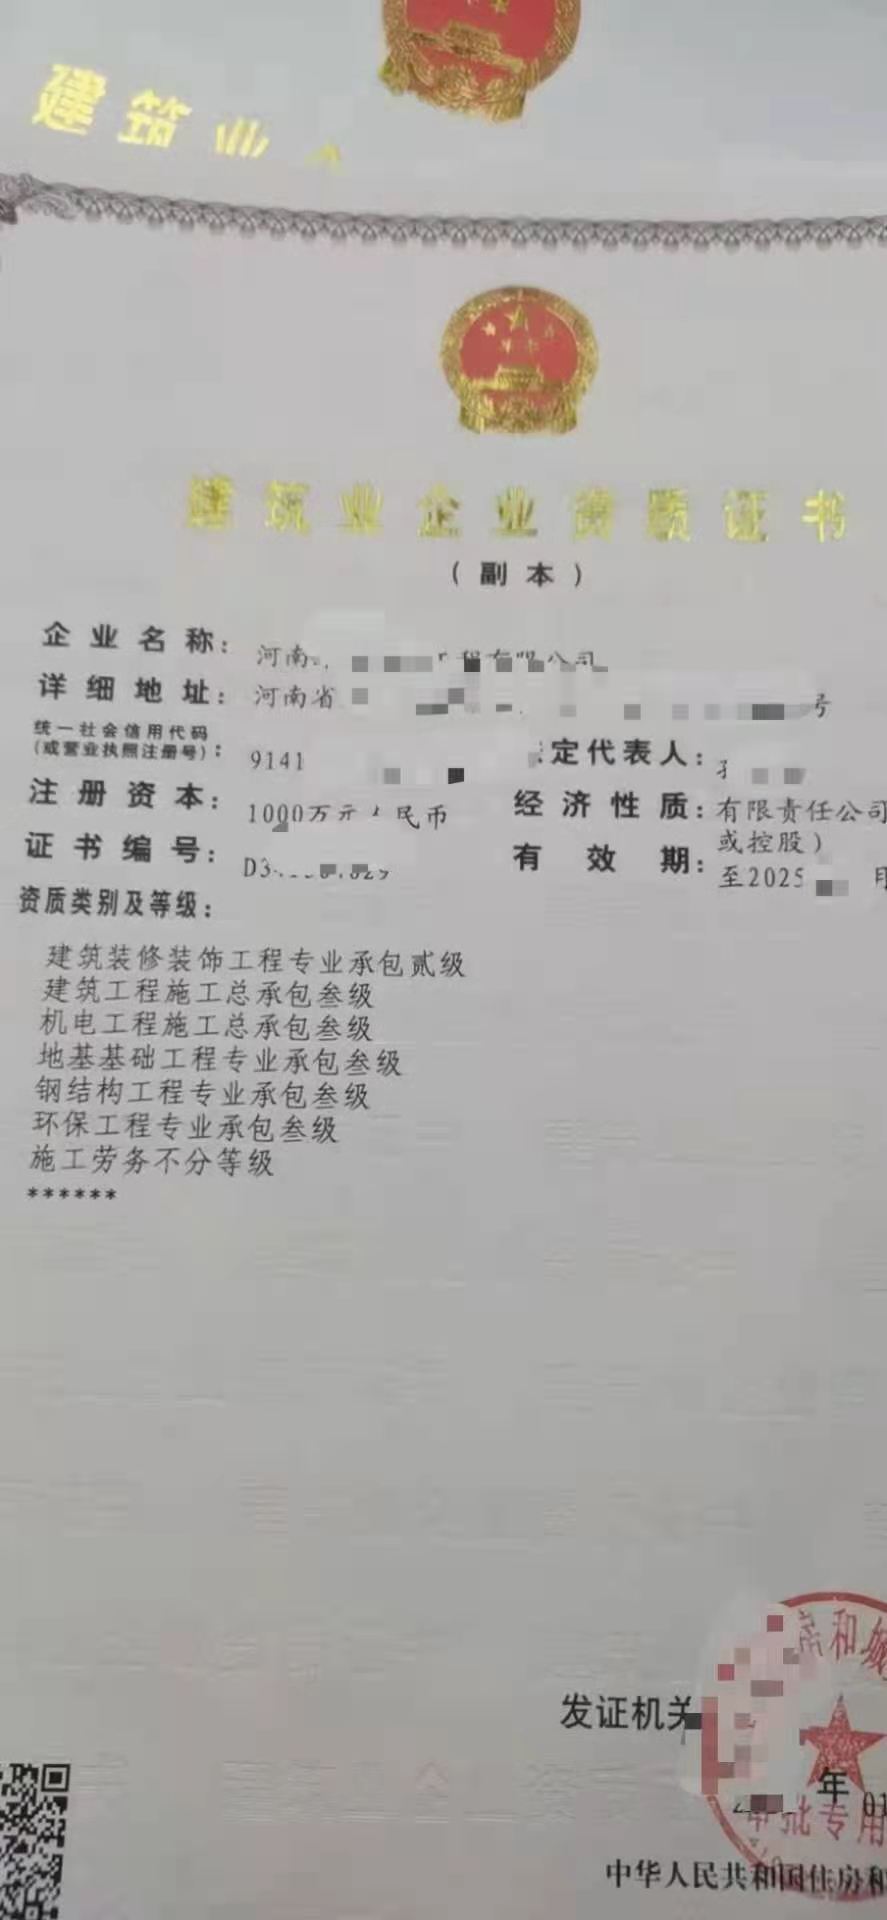 建筑业
建筑业企业资质证书
(副本)
企业名称：河南 工程有限公司
详细地址：河南省 号
统一社会信用代码
(或营业执照注册号)：9141
定代表人：
注册资本：1000万元人民币
经济性质：有限责任公司
或控股）
证书编号：D3
有效期：至2025 月
资质类别及等级：
建筑装修装饰工程专业承包贰级
建筑工程施工总承包叁级
机电工程施工总承包叁级
地基基础工程专业承包叁级
钢结构工程专业承包叁级
环保工程专业承包叁级
施工劳务不分等级
******
和城
发证机关
年01
审批专用
中华人民共和国住房和